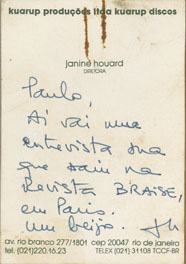 kuarup produções ltda kuarup discos
janine houard
DIRETORA
Paulo,
Aí vai uma
entrevista sua
que saiu na
Revista BRAISE,
em Paris.
um beijo. JH
av. rio branco 277/1801 cep 20047 rio de janeiro
tel. (021)220.16.23 TELEX (021) 31108 TCCF-BR